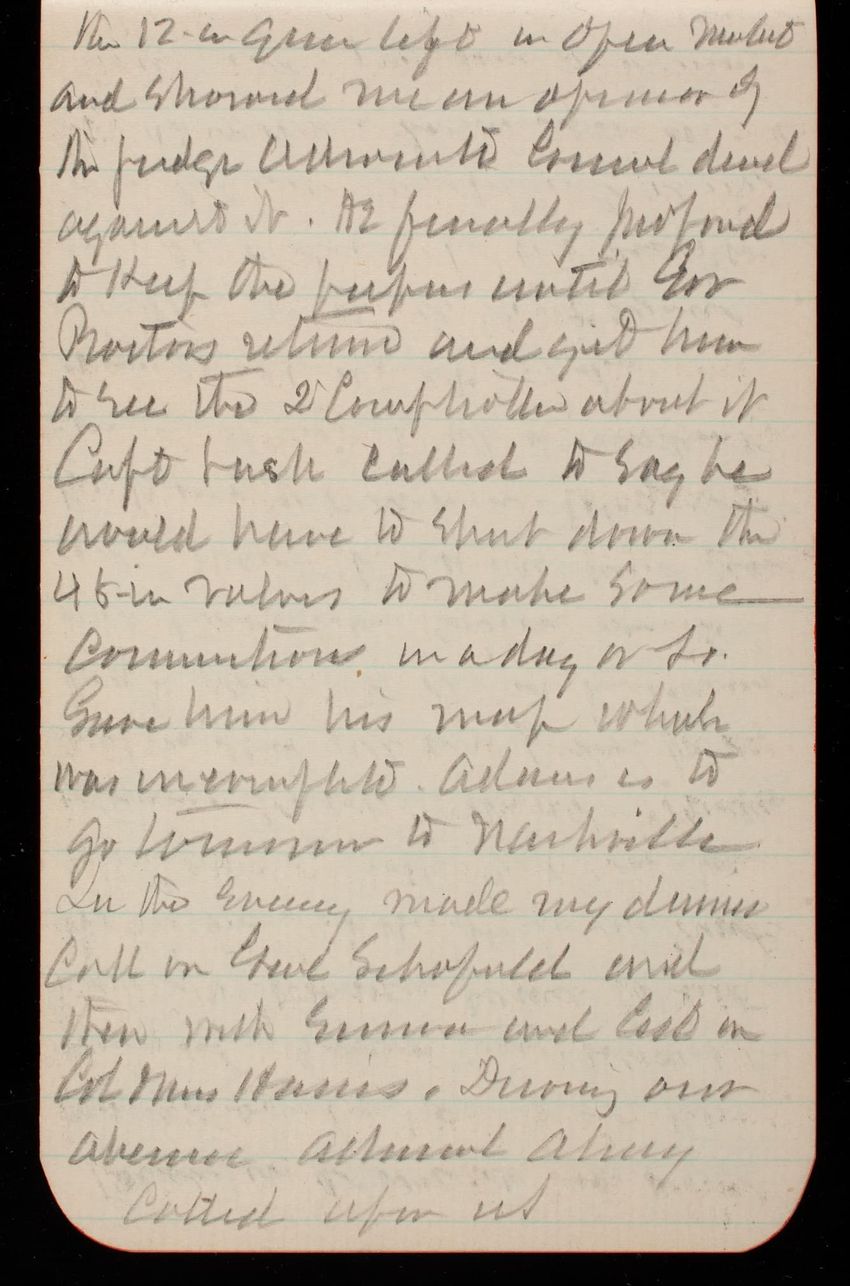 the 12-in Guns left in open market
and showed me an opinion of
the Judge Advocate General dead
against it. He finally proposed
to keep the papers until Gov
Proctors return and get him
to see the 2d Comptroller about it
Capt Lusk called to say he
would have to shut down the
48-in valves to make some
connections in a day or so.
Gave him his map which
was incomplete. Adams is to
go tomorrow to Nashville
In the evening made my dinner
call on Genl Schofield and
then with Emma and Cast on
Col Mrs Harris. During our
absence Admiral Almy
called upon us